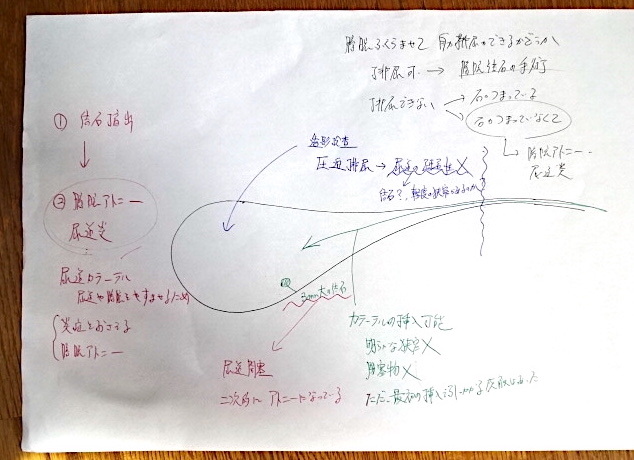 膀胱ふくらませて 自力排尿ができるかどうか
排尿可 → 膀胱結石の手術
排尿できない → 石がつまっている
石がつまっていなくて
膀胱アトニー
尿道炎
① 結石摘出
② 膀胱アトニー
尿道炎
尿道カテーテル
尿道や膀胱を休ませるため
炎症をおさえる
膀胱アトニー
造影検査
圧迫排尿 → 尿道の
結石?
3mm大の結石
尿道閉塞
二次的に アトニーになっている
カテーテルの挿入可能
明らかな狭窄×
閉塞物×
ただ、最初の挿入時に